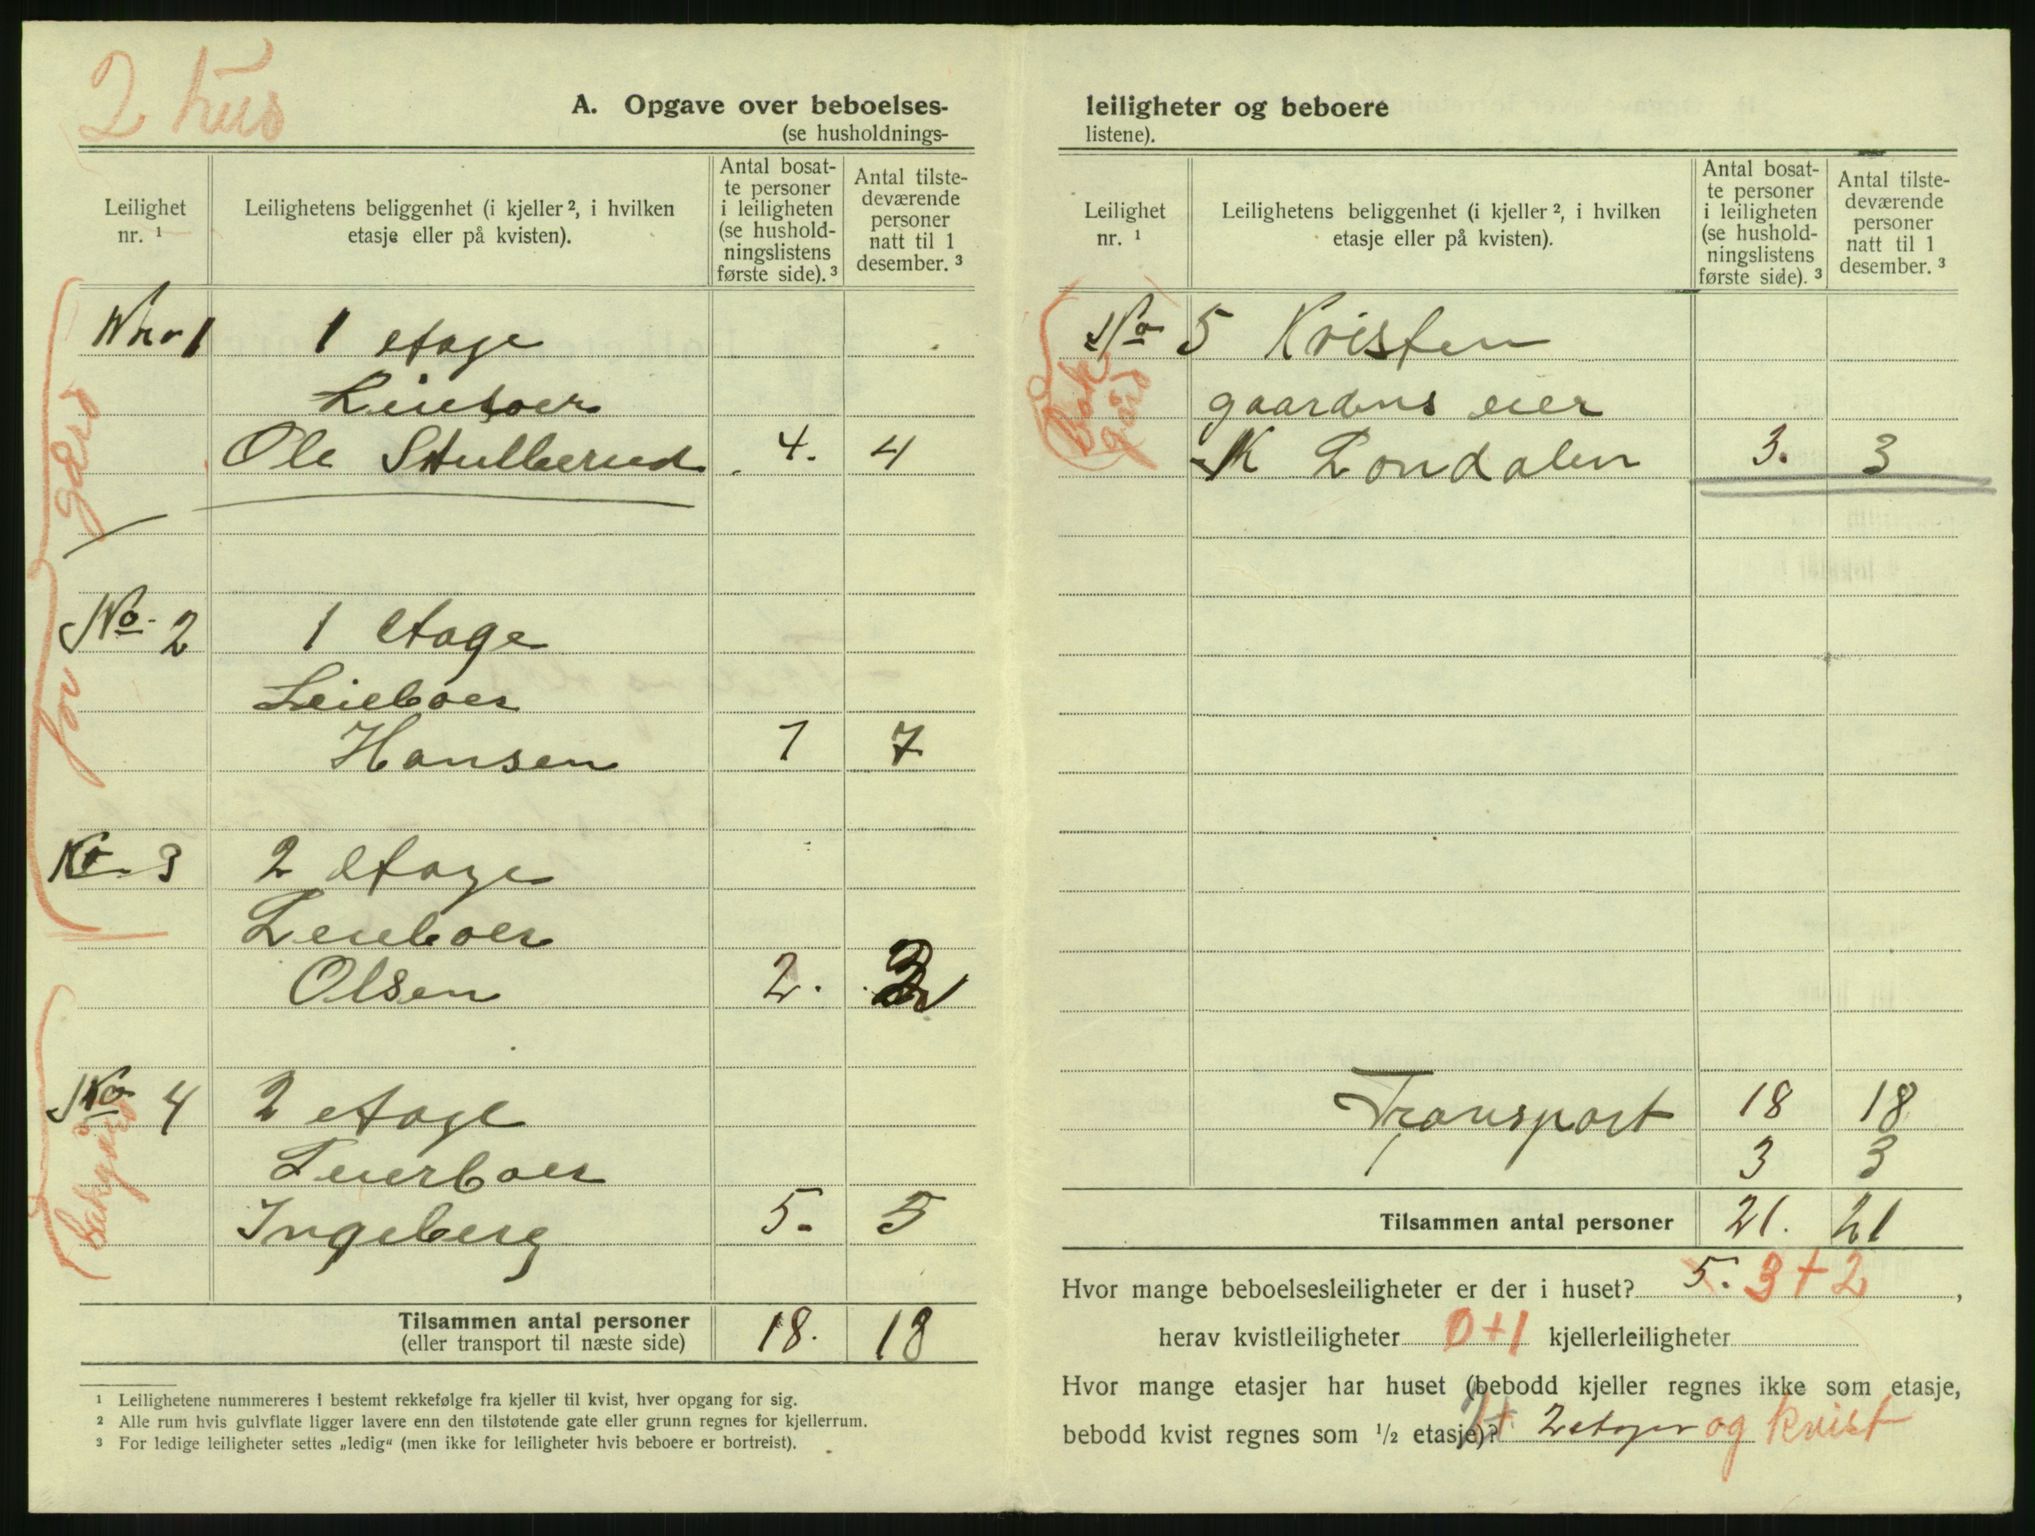 2 hus
A. Opgave over beboelses-
(se husholdnings-
Leilighet
nr. ¹
Leilighetens beliggenhet (i kjeller ², i hvilken
etasje eller på kvisten).
Antal bosat-
te personer
i leiligheten
(se hushold-
ningslistens
første side). ³
Antal tilste-
deværende
personer
natt til 1
desember. ³
for gård
Nr. 1 1 etage
Leieboer
Ole Stulberud 4. 4
No. 2 1 etage
Leieboer
Hansen 7 7
No 3 2 etage
Leieboer
Olsen 2. 2
bakgård
No 4 2 etage
Leierboer
Ingeberg 5. 5
Tilsammen antal personer
(eller transport til næste side) 18. 18
¹ Leilighetene nummereres i bestemt rekkefølge fra kjeller til kvist, hver opgang for sig.
² Alle rum hvis gulvflate ligger lavere enn den tilstøtende gate eller grunn regnes for kjellerrum.
³ For ledige leiligheter settes „ledig“ (men ikke for leiligheter hvis beboere er bortreist).
leiligheter og beboere
listene).
Leilighet
nr. ¹
Leilighetens beliggenhet (i kjeller ², i hvilken
etasje eller på kvisten).
Antal bosat-
te personer
i leiligheten
(se hushold-
ningslistens
første side). ³
Antal tilste-
deværende
personer
natt til 1
desember. ³
Bak
gård
No 5 Kvisten
gaardens eier
K Londalen 3. 3
Transport 18 18
3 3
Tilsammen antal personer 21. 21
Hvor mange beboelsesleiligheter er der i huset? 5. 3+2,
herav kvistleiligheter 0+1 kjellerleiligheter
Hvor mange etasjer har huset (bebodd kjeller regnes ikke som etasje,
bebodd kvist regnes som ½ etasje)? 2 etager og kvist